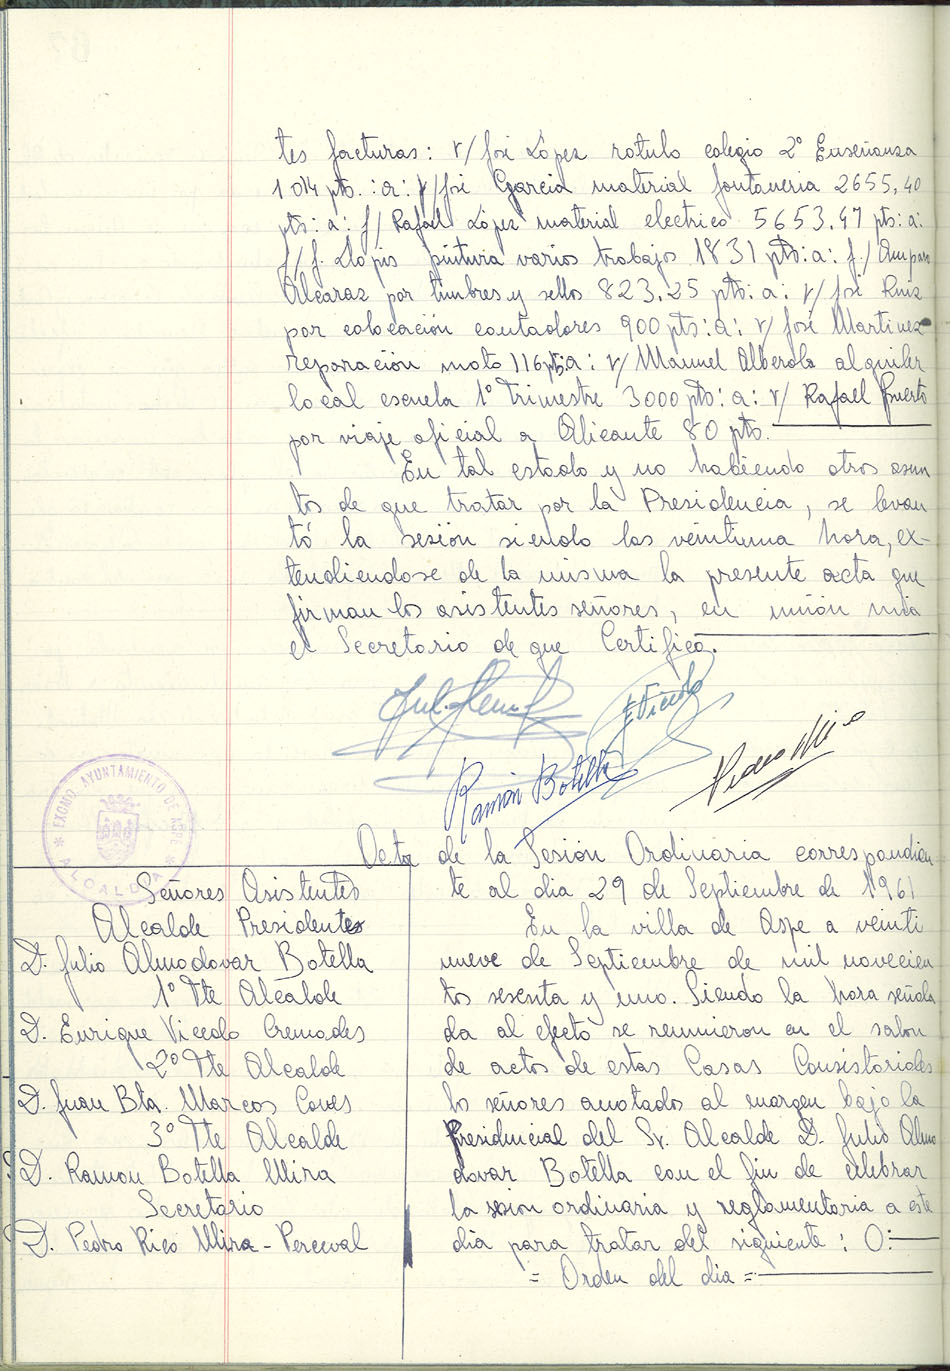 tes facturas: r/ José López rotulo colegio 2º Enseñanza
1014 pts. :a: r/ José Garcia material fontaneria 2655,40
pts:a: f/ Rafael López material electrico 5653,47 pts:a:
f/ J. Llopis pintura varios trabajos 1831 pts:a: f./ Amparo
Alcaraz por timbres y sellos 823,25 pts:a: r/ José Ruiz
por colocación contadores 900 pts:a: r/ José Martinez
reparación moto 116 pts:a: r/ Manuel Alberola alquiler
local escuela 1º Trimestre 3000 pts:a: r/ Rafael Puerto
por viaje oficial a Alicante 80 pts.
En tal estado y no habiendo otros asun
tos de que tratar por la Presidencia, se levan
tó la sesión siendo las veintiuna hora, ex-
tendiendose de la misma la presente acta que
firman los asistentes señores, en unión mia
el Secretario de que Certifico.
E Vicedo
Ramón Botella
Pedro Rico
EXCMO. AYUNTAMIENTO DE ASPE
* ALCALDIA *
Acta de la Sesión Ordinaria correspondien-
te al dia 29 de Septiembre de 1961
Señores Asistentes
Alcalde Presidente
D. Julio Almodovar Botella
1º Tte Alcalde
D. Enrique Vicedo Cremades
2º Tte Alcalde
D. Juan Bta. Marcos Coves
3º Tte Alcalde
D. Ramon Botella Mira
Secretario
D. Pedro Rico Mira-Perceval
En la villa de Aspe a veinti
nueve de Septiembre de mil novecien
tos sesenta y uno. Siendo la hora señala
da al efecto se reunieron en el salon
de actos de estas Casas Consistoriales
los señores anotados al margen bajo la
Presidencial del Sr. Alcalde D. Julio Almo
dovar Botella con el fin de celebrar
la sesion ordinaria y reglamentaria a este
dia para tratar del siguiente: O:
= Orden del dia =